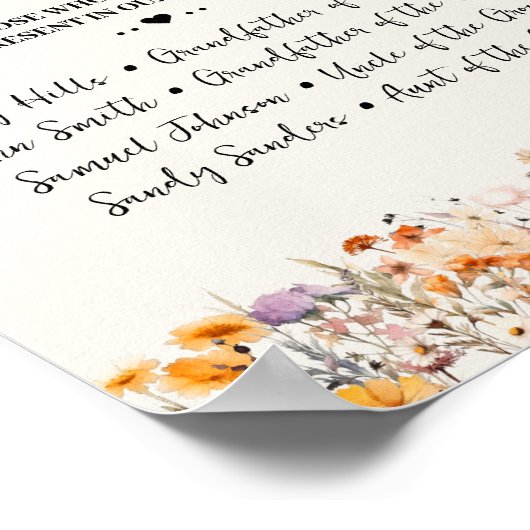 PRESENT IN OUR
Hills • Grandfather of
Smith • Grandfather of the
Samuel Johnson • Uncle of the Groom
Sandy Sanders • Aunt of the